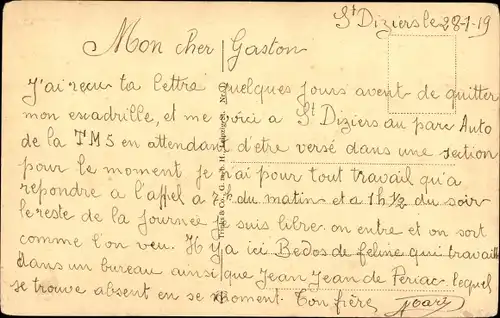 St Diziers le 28-1-19
Mon cher Gaston
J'ai reçu ta lettre quelques jours avent de quitter
mon escadrille, et me voici a St Diziers au parc Auto
de la TM5 en attendant d'etre versé dans une section
pour le moment je n'ai pour tout travail qu'a
repondre a l'appel a 7h du matin et a 1h½ du soir
le reste de la journée je suis libre on entre et on sort
comme l'on veu. Il y a ici Bedos de feline qui travaille
dans un bureau ainsi que Jean Jean de Periac lequel
se trouve absent en se moment. Ton frère